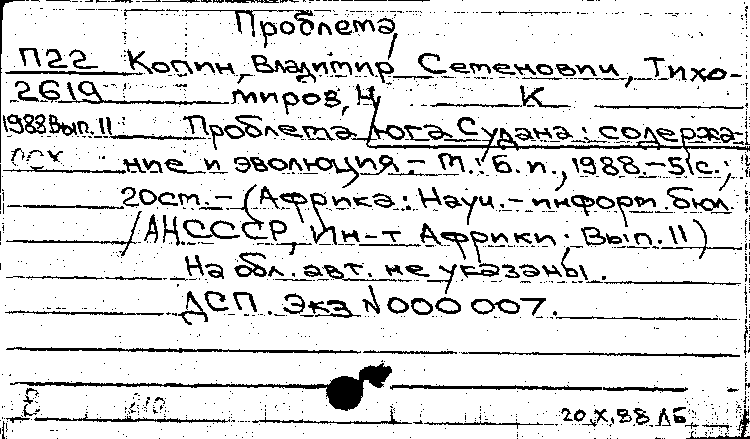 Проблема
П22 Копин, Владимир Семенович, Тихо-
2619 миров, Н. К
1988 Вып. 11 Проблема юга Судана: содержа-
ние и эволюция.- М.: Б. и., 1988.-51с.;
20см.-(Африка: Науч.-информ. бюл.
/АН СССР, Ин-т Африки; Вып. 11)
На обл. авт. не указаны.
ДСП. Экз N 000 007.
8 210 20.X.88 ЛБ